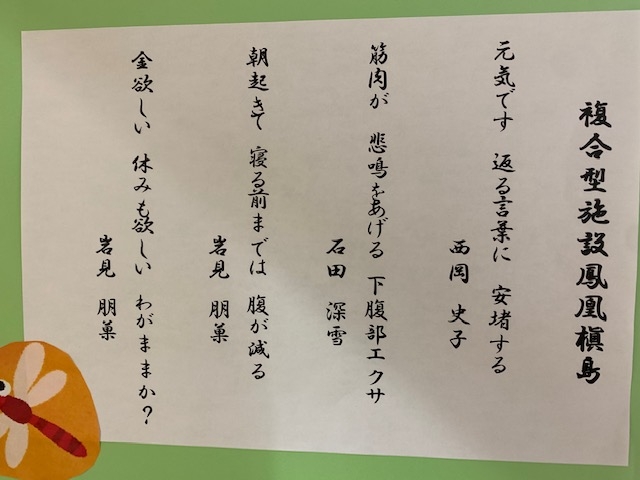 複合型施設鳳凰槇島
元気です 返る言葉に 安堵する
西岡 史子
筋肉が 悲鳴をあげる 下腹部エクサ
石田 深雪
朝起きて 寝る前までは 腹が減る
岩見 朋菓
金欲しい 休みも欲しい わがままか?
岩見 朋菓